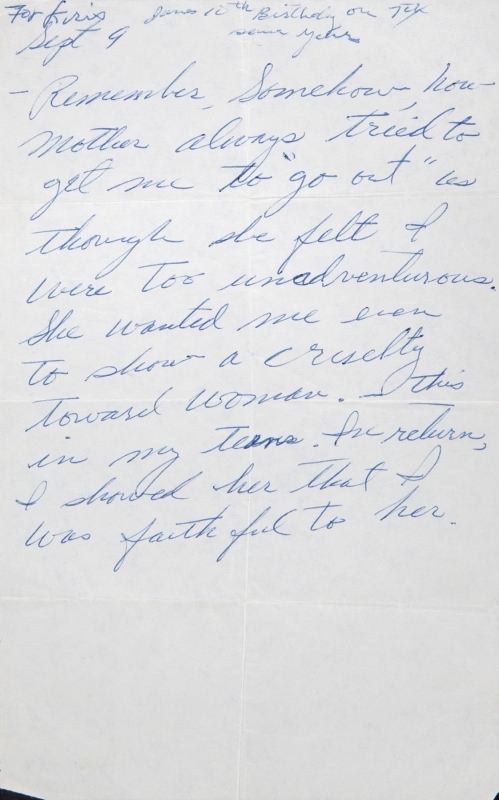 For Kris
Janes 12th Birthday on
Sept 9
Years
– Remember, Somehow, how
mother always tried to
get me to "go out" as
though she felt I
were too unadventurous.
She wanted me even
to show a cruelty
toward woman. – this
in my teens. In return,
I showed her that I
was faithful to her.